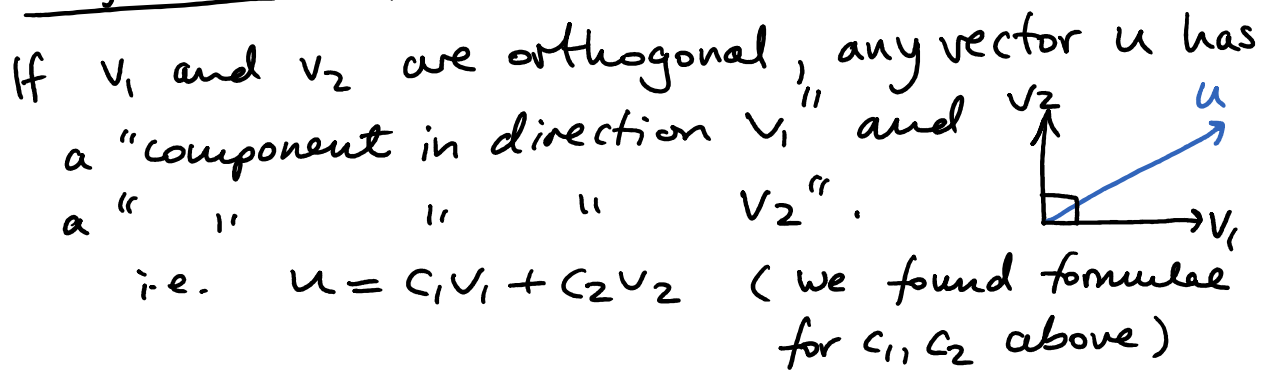 If v₁ and v₂ are orthogonal, any vector u has
a "component in direction v₁" and
a " " " " v₂".
i.e. u = c₁v₁ + c₂v₂ (we found formulae
for c₁, c₂ above)
v₂
u
v₁